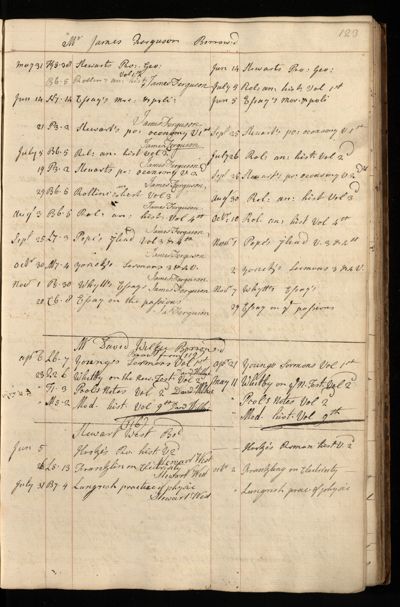 123
Mr James Ferguson Borrow'd
May 31 Stewarts Geo: Jun 14 Stewarts Geo:
B6-5 Rollins an: hist Vol 1st James Ferguson July 5 Rol: an: hist: Vol 1st
Jun 14 H7-14 Essay's mor: & poli: Jun 5 Essay's mor: & poli
James Ferguson
21 P3-2 Stewart's po: oeconomy V 1st Sept 25 Stewart's po: oeconomy V 1st
James Ferguson
July 5 B6-5 Rol: an: hist Vol 2d July 26 Rol: an: hist: Vol 2d
James Ferguson
19 P3-2 Stewarts po: oeconomy V 2d Sept 25 Stewart's po: oeconomy V 2d
James Ferguson
29 B6-5 Rollins hist Vol 3 Aug 30 Rol: an: hist Vol 3d
James Ferguson
Aug 3 B6-5 Rol: an: hist: Vol 4th Octr 10 Rol an: hist Vol 4th
James Ferguson
Sept 25 L7-3 Pope's Iliad Vol 3 & 4th Novr 1 Pope's Iliad V. 3 & 4th
James Ferguson
Octr 30 M7-4 Yorick's Sermons 3 & 4 V. 2 Yorick's Sermons 3 & 4 V.
Novr 1 P8-30 Whytt's Essay's James Ferguson Novr 7 Whytt's Essay's
20 C6-8 Essay on the passions 29 Essay on ye passions
Ja: Ferguson
Mr David Willes Borrow'd
Apr 6 L6-7 Youngs Sermons Vol 1st Apr 21 Youngs Sermons Vol 1st
23 Whitby on the New Test Vol 2d May 11 Whitby on ye N. Test Vol 2d
Pools Notes Vol 2 David Willes " Pools Notes Vol 2d
M5-2 Mod. hist Vol 9th David Willes " Mod. hist: Vol 9th
Stewart West Bor'd
Jun 5 Hooke's Ro: hist V 2 Hooke's Roman hist V 2
Stewart West
L5-13 Franklin on Electricity Octr 2 Franklin on Electricity
Stewart West
July 31 B7-4 Langrish practice of physic " Langrish prac: of physic
Stewart West